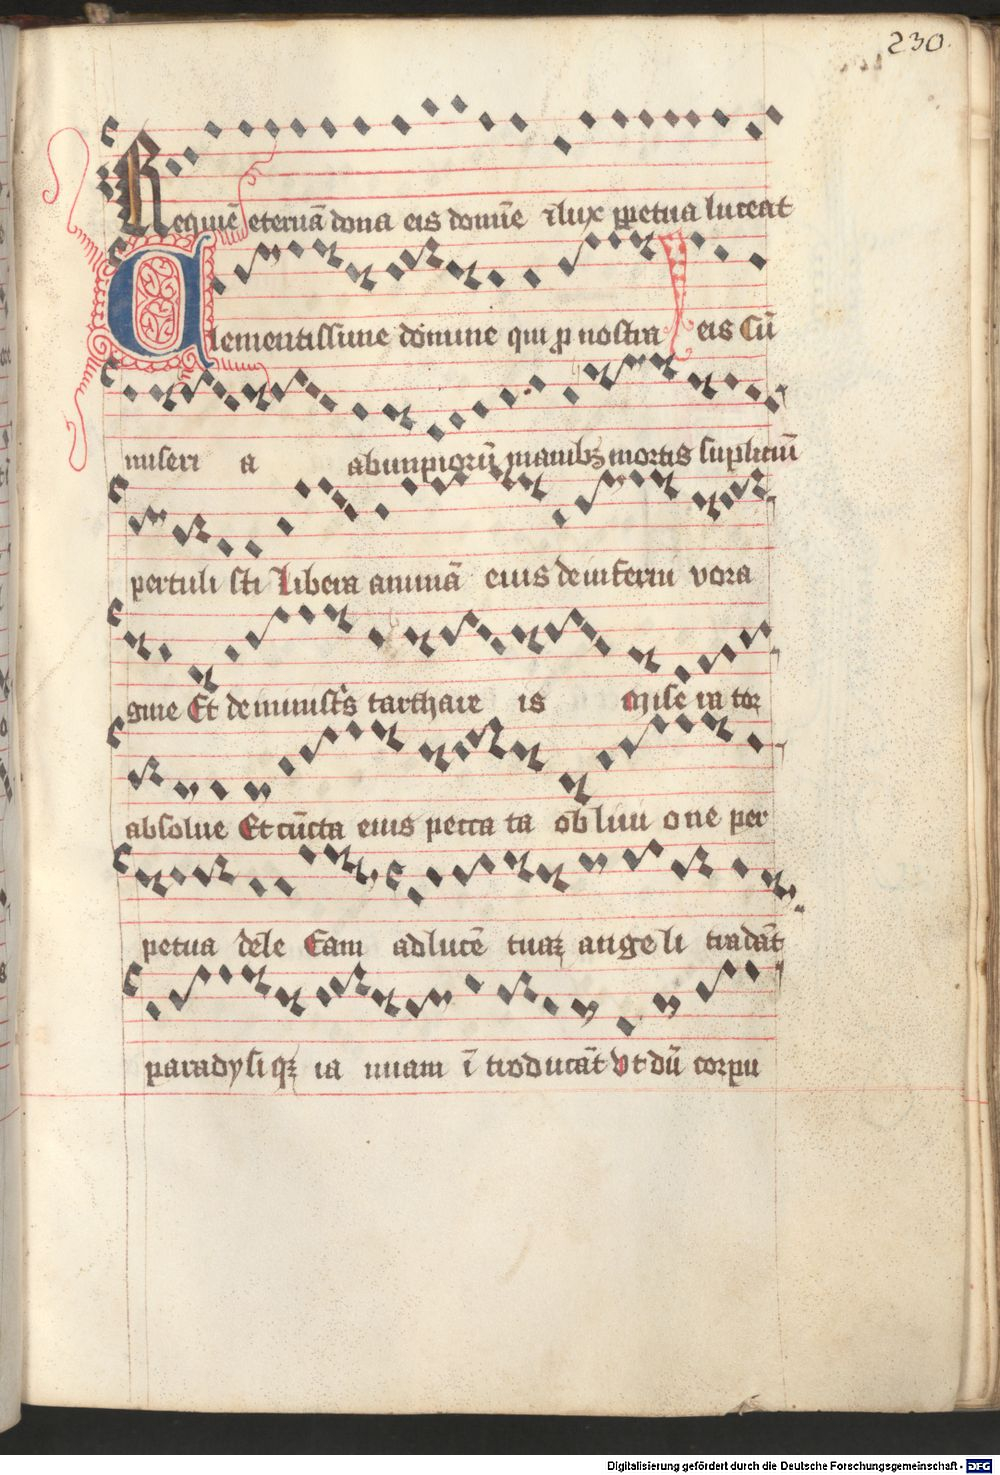 230
Requiē eternā dona eis domīe ⁊ lux ꝑpetua luceat
Clementissime domine qui ꝓ nostra eis Cū
miseri a ab impiorū manibꝫ mortis supliciū
pertuli sti Libera animā eius de inferni vora
gine Et de ministˢ tartharе is Mise ra tor
absolue Et cūcta eius pecca ta ob livi one per
petua dele Eam ad lucē tuaꝫ ange li tradāt
paradysi qꝫ ia nuam ī troducāt Vt dū corpu
Digitalisierung gefördert durch die Deutsche Forschungsgemeinschaft - DFG